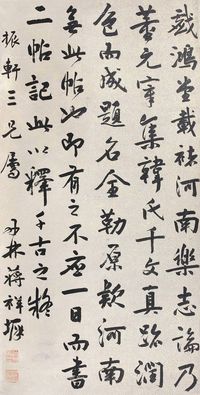 戲鴻堂載褚河南樂志論乃
董元宰集韓氏千文真跡潤
色而成題名全勒原欵河南
無此帖也即有之不應一日而書
二帖記此以釋千古之疑
振軒三兄屬 丹林蔣祥墀